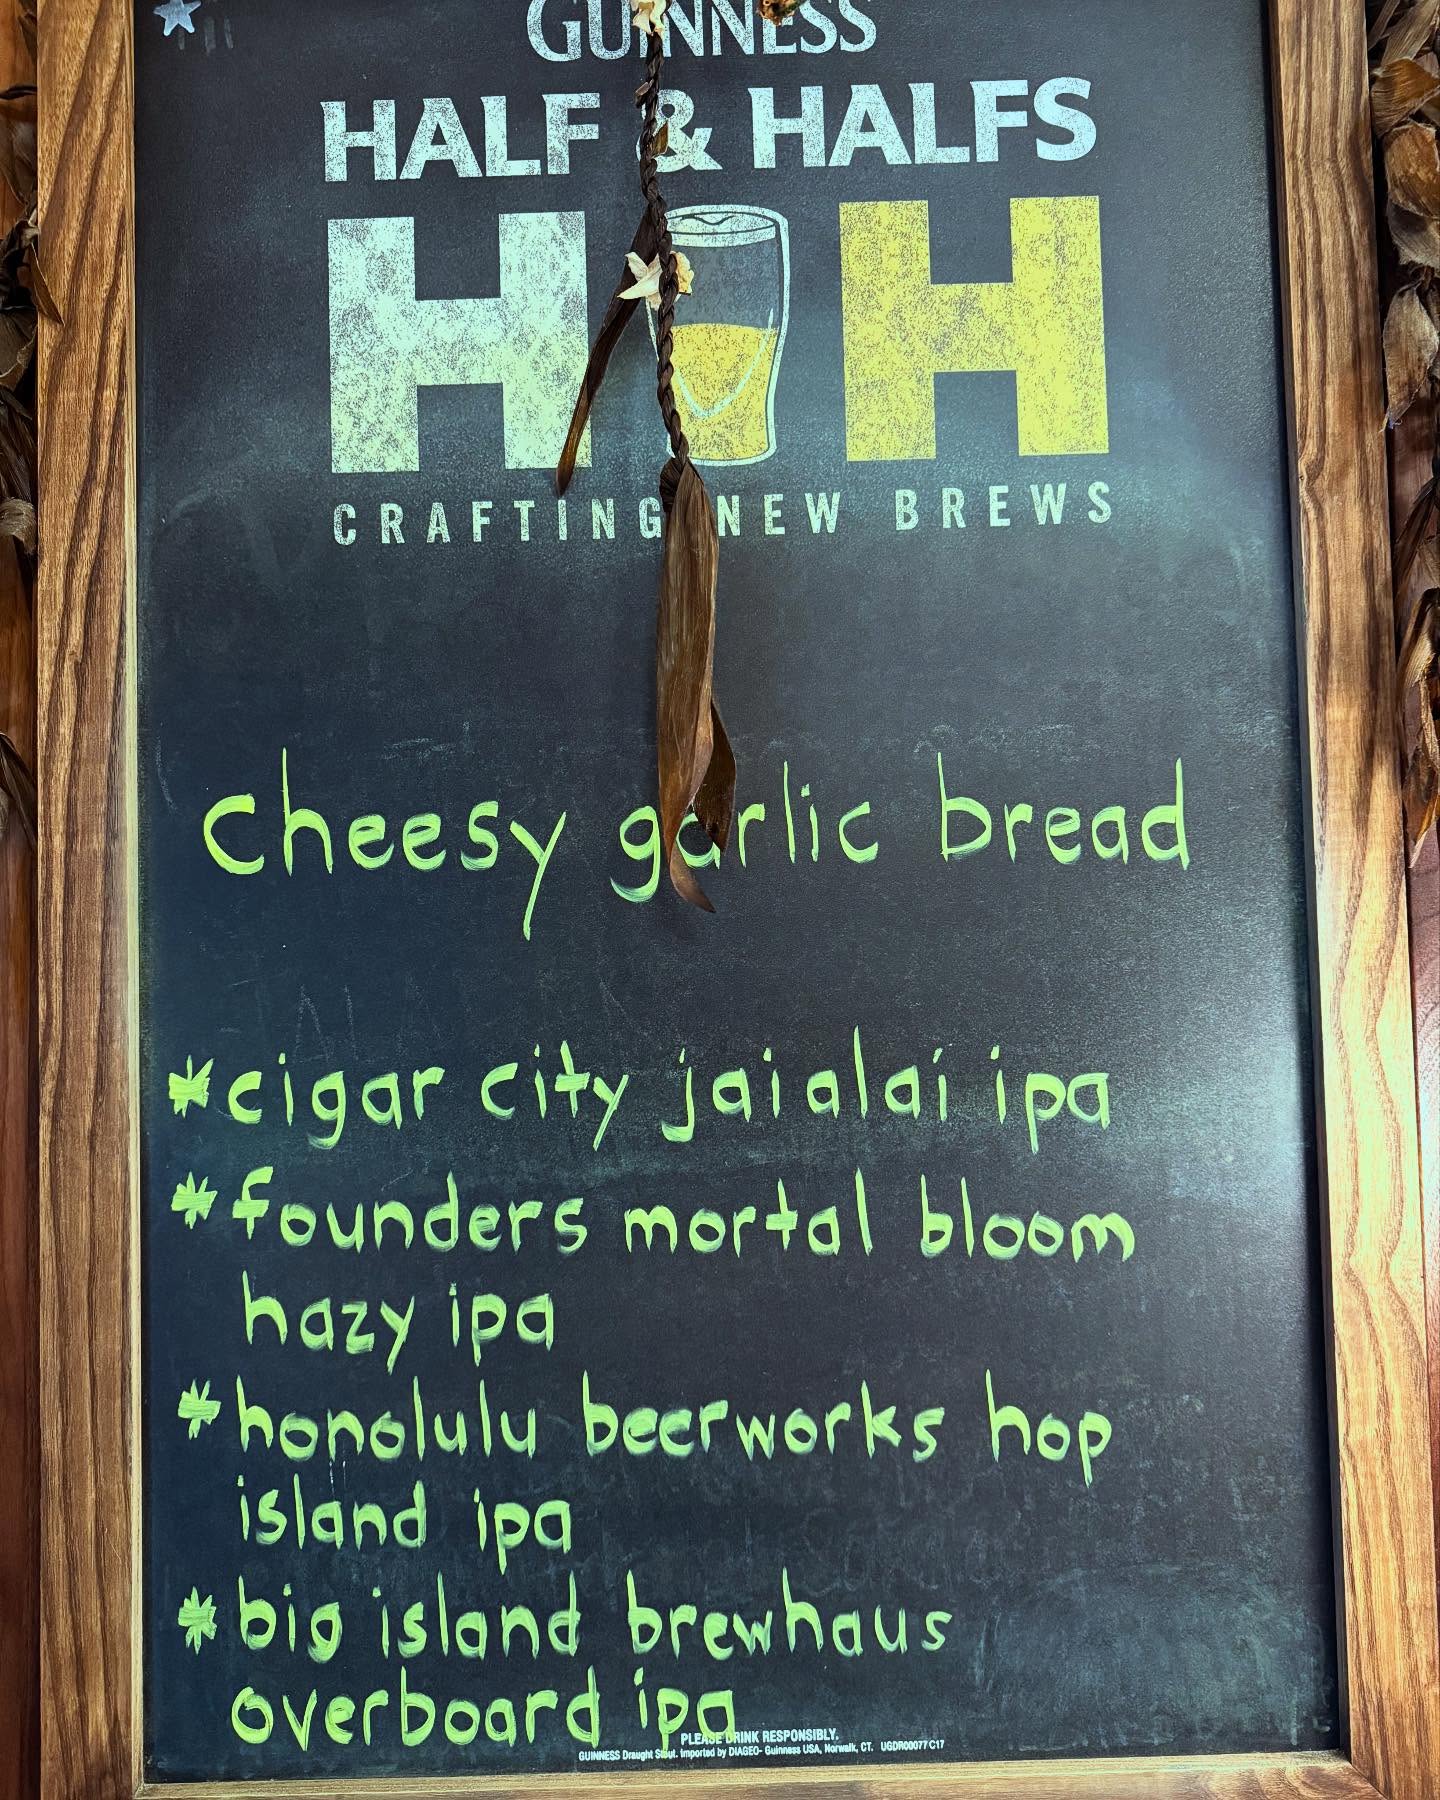 GUINNESS
HALF & HALFS
H H
CRAFTING NEW BREWS
cheesy garlic bread
*cigar city jai alai ipa
*founders mortal bloom
hazy ipa
*honolulu beerworks hop
island ipa
*big island brewhaus
overboard ipa
PLEASE DRINK RESPONSIBLY.
GUINNESS Draught Stout. Imported by DIAGEO- Guinness USA, Norwalk, CT. UGDR00077 C17